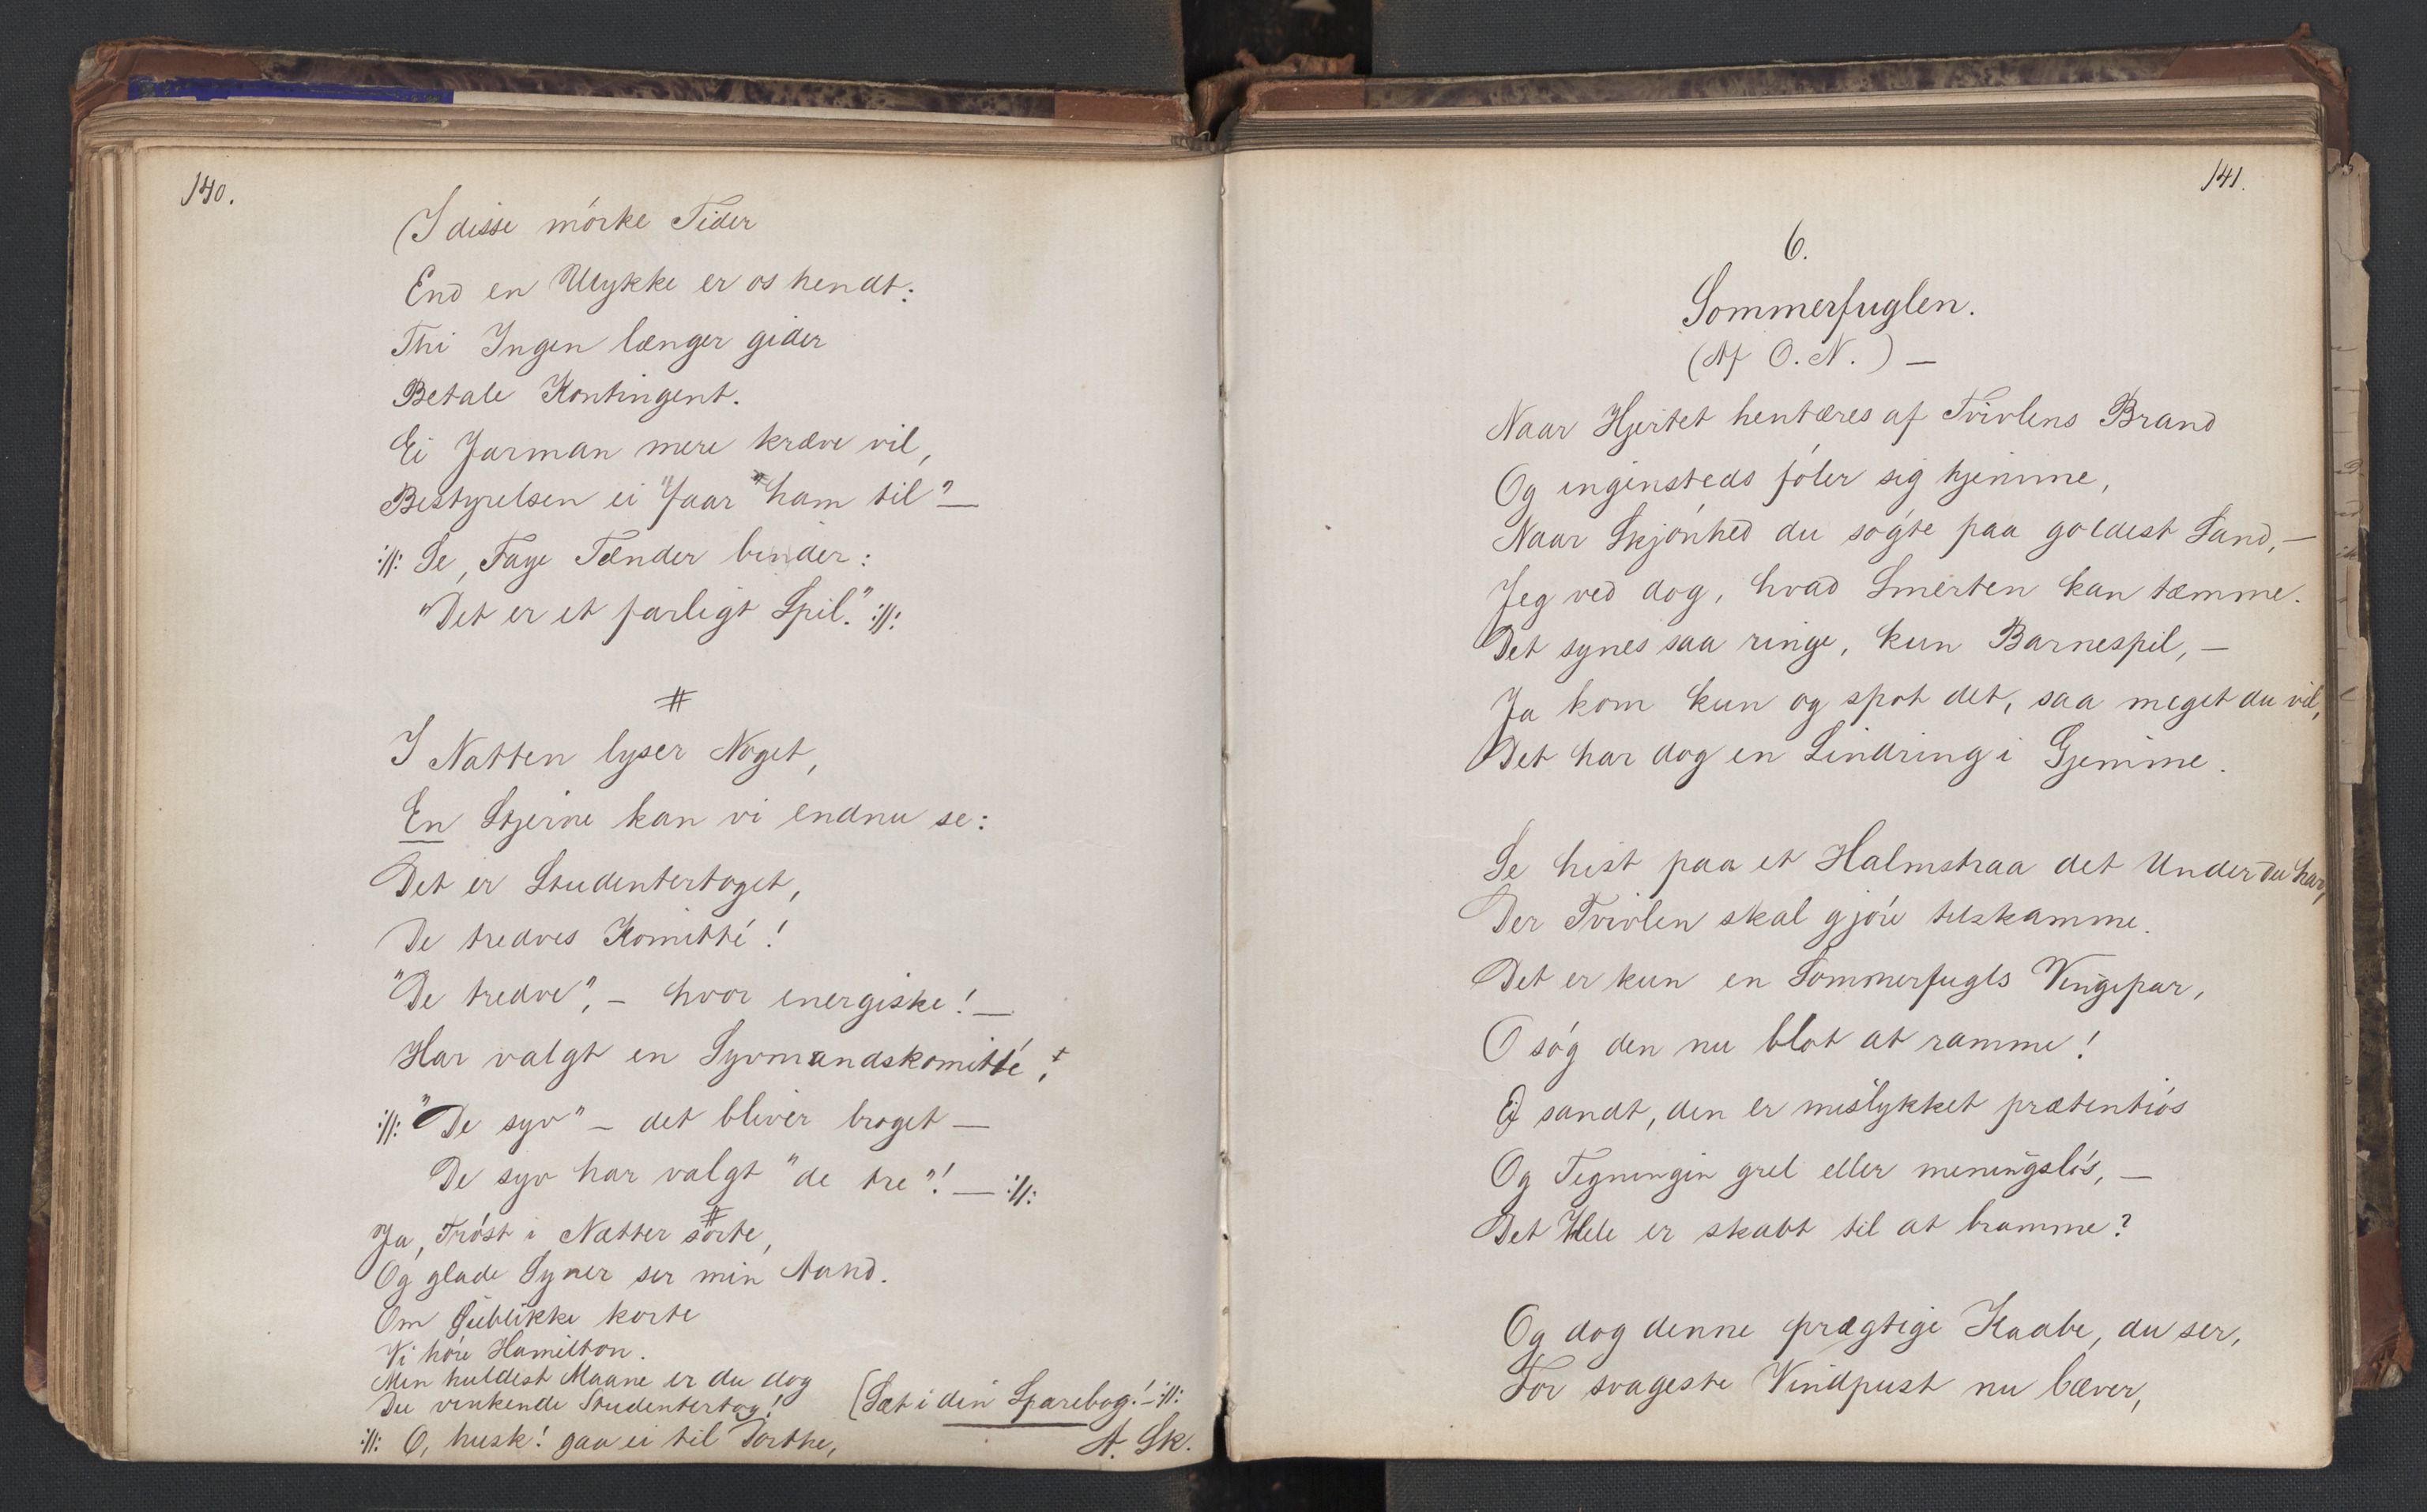 140.
(I disse mórke Tider
End en Ulykke er os hendt:
Thi Ingen længer gider
Betale Kontingent.
Ei Jarman mere kræve vil,
Bestyrelsen ei "faar" ham til" —
:||: Se, Faye Tænder binder:
"Det er et farligt Spil." :||:
#
I Natten lyser Noget,
En Stjerne kan vi endnu se:
Det er Studentertoget,
De tredves Komitté!
"De tredve", – hvor energiske! —
Har valgt en Syvmandskomitté,
:||: "De syv" – det bliver broget —
De syv har valgt "de tre"! — :||:
#
Ja, Tróst i Nætter sorte,
Og glade Syner ser min Aand.
Om Øieblikke korte
Vi hóre Hamilton.
Men huldest Maane er du dog
Du vinkende Studentertog!
:||: O, husk! gaa ei til Porthe,
[Sæt i din Sparebog! – :||:
A. Sk.
141.
6.
Sommerfuglen.
(Af O. N.) —
Naar Hjertet hentæres af Tvivlens Brand
Og ingensteds fóler sig hjemme,
Naar Skjónhed du sógte paa goldest Sand, —
Jeg ved dog, hvad Smerten kan tæmme.
Det synes saa ringe, kun Barnespil, —
Ja kom kun og spot det, saa meget du vil,
Det har dog en Lindring i Gjemme.
Se hist paa et Halmstraa det Under du har,
Der Tvivlen skal gjóre tilskamme.
Det er kun en Sommerfugls Vingepar,
O sóg den nu blot at ramme!
Ei sandt, den er mislykket prætentiós
Og Tegningen grel eller meningslós, —
Det Hele er skabt til at bramme?
Og dog denne prægtige Kaabe, du ser,
For svageste Vindpust nu bæver,